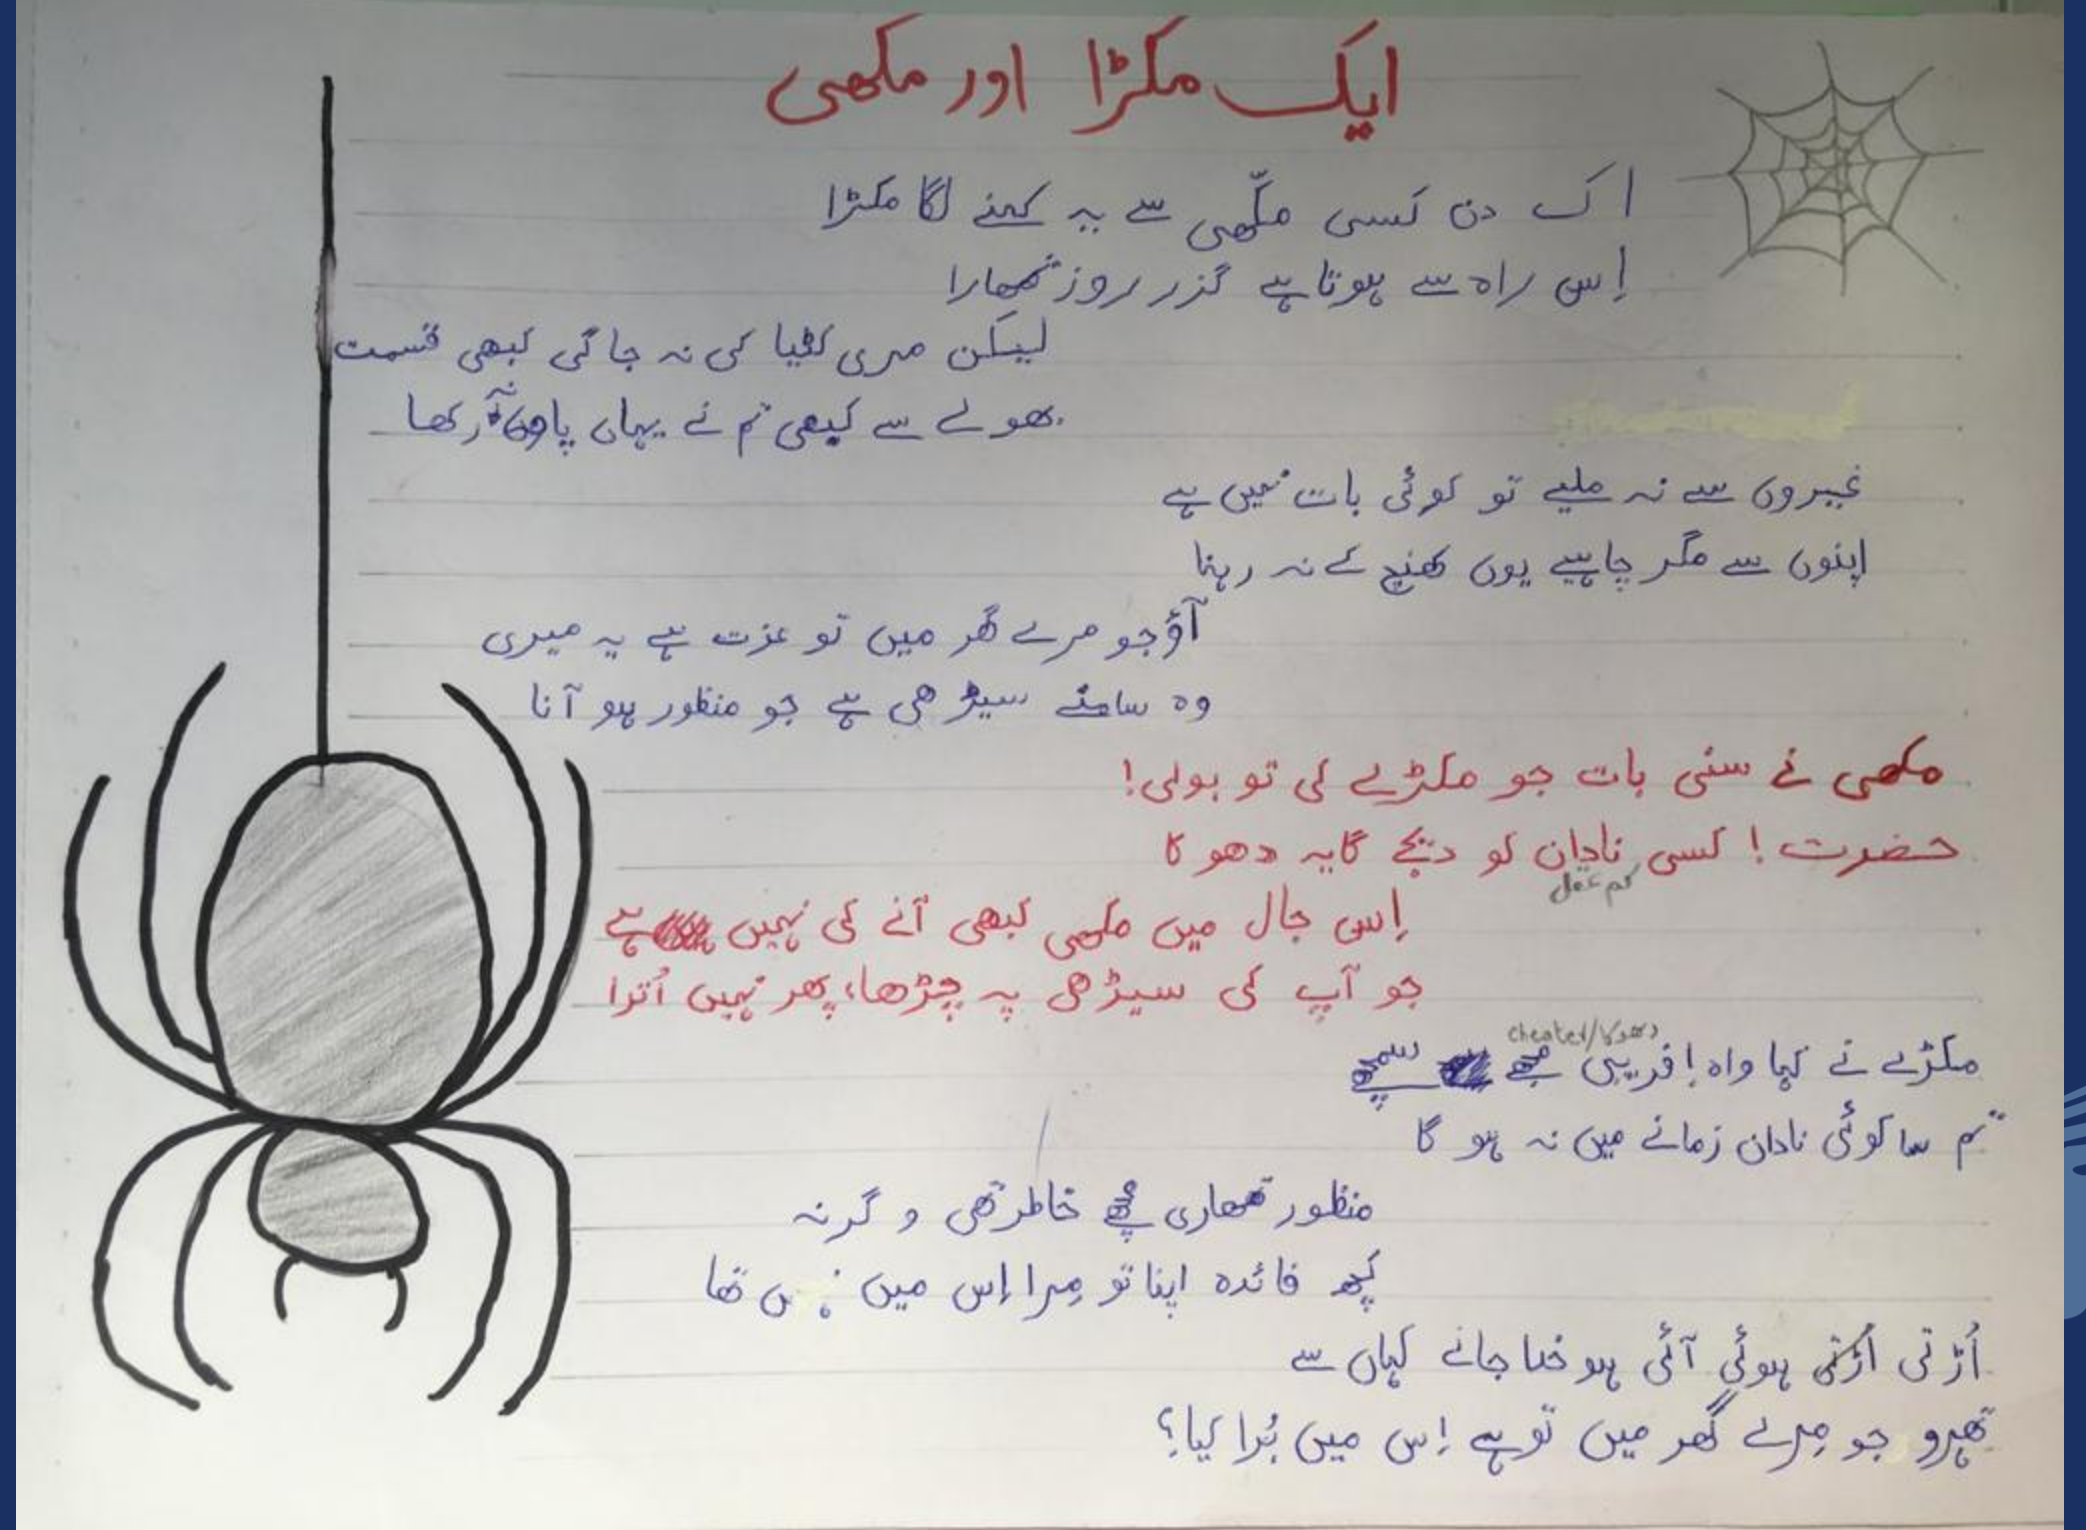 ایک مکڑا اور مکھی
اک دن کسی مکّھی سے یہ کہنے لگا مکڑا
اِس راہ سے ہوتا ہے گزر روز تمھارا
لیکن مری کٹیا کی نہ جاگی کبھی قسمت
بھولے سے کبھی تم نے یہاں پاؤں نہ رکھا
غیروں سے نہ ملیے تو کوئی بات نہیں ہے
اپنوں سے مگر چاہیے یوں کھنچ کے نہ رہنا
آؤ جو مرے گھر میں تو عزت ہے یہ میری
وہ سامنے سیڑھی ہے جو منظور ہو آنا
مکھی نے سنی بات جو مکڑے کی تو بولی!
حضرت! کسی نادان کو دیجے گا یہ دھوکا
کم عقل
اِس جال میں مکھی کبھی آنے کی نہیں ہے
جو آپ کی سیڑھی پہ چڑھا، پھر نہیں اُترا
دھوکا/cheater
مکڑے نے کہا واہ! فریبی مجھے سمجھے
تم سا کوئی نادان زمانے میں نہ ہو گا
منظور تمھاری مجھے خاطر تھی وگرنہ
کچھ فائدہ اپنا تو مِرا اِس میں تھا
اُڑتی اُڑتی ہوئی آئی ہو خدا جانے کہاں سے
ٹھہرو جو مِرے گھر میں تو ہے اِس میں بُرا کیا؟